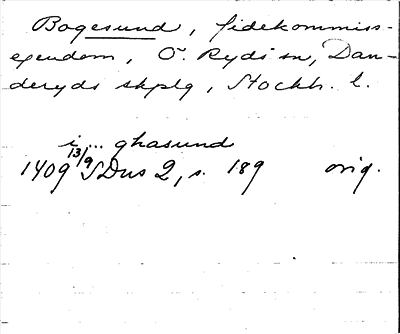 Bogesund, fidekommiss-
egendom, Ö. Ryds sn, Dan-
deryds skplg, Stockh. l.
i... ghasund
1409 13/9 SDns 2, s. 189 orig.